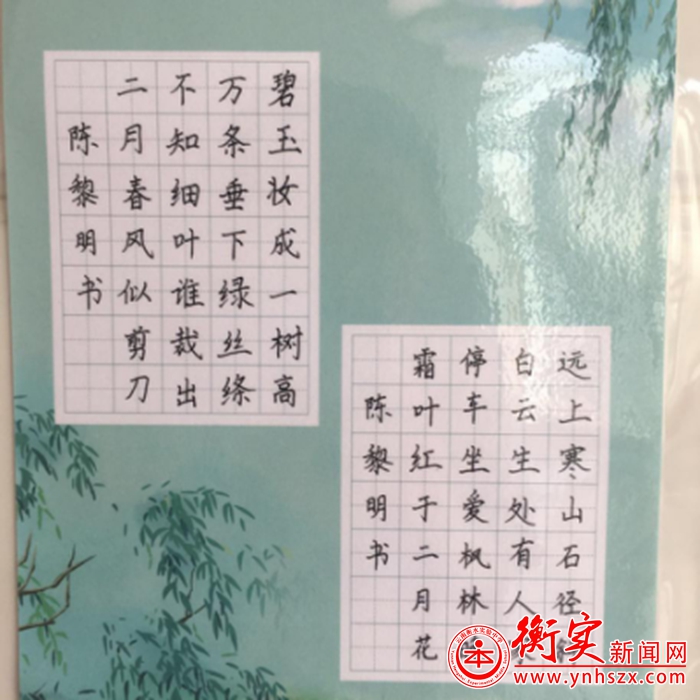 碧玉妆成一树高
万条垂下绿丝绦
不知细叶谁裁出
二月春风似剪刀
陈黎明书
远上寒山石径
白云生处有人
停车坐爱枫林
霜叶红于二月花
陈黎明书
云南衡水实验中学
衡实新闻网
www.ynhszx.com